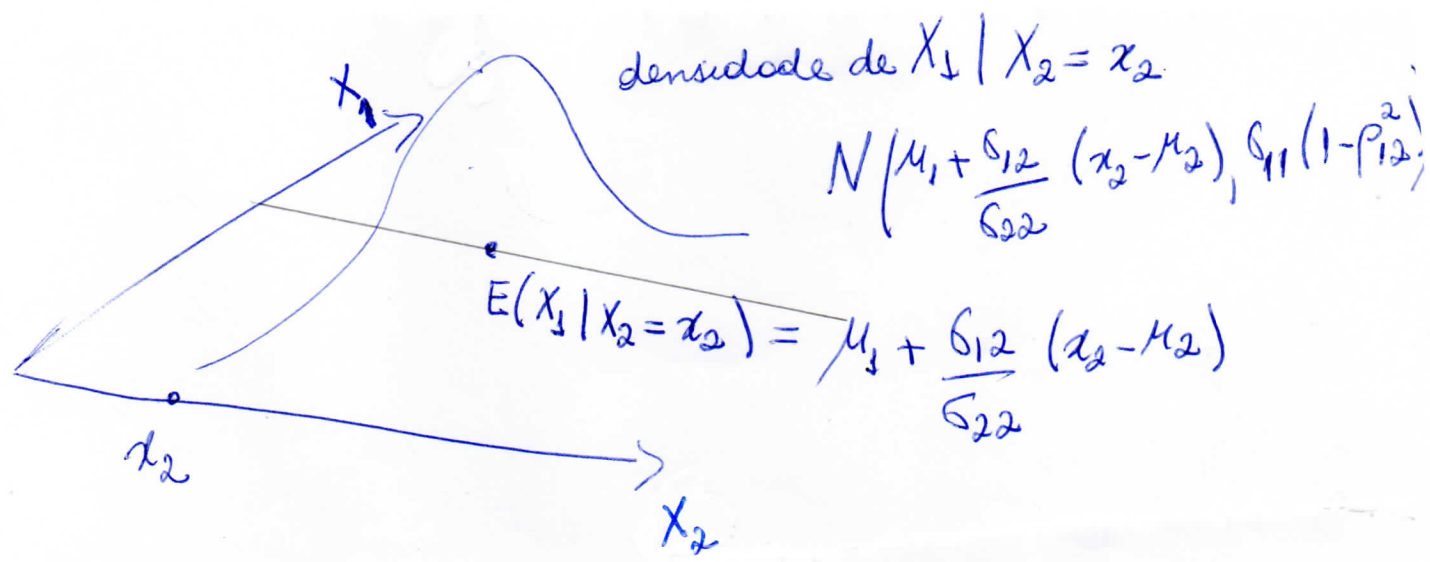 densidade de X₁ | X₂ = x₂
X₁
N(μ₁ + σ₁₂/σ₂₂ (x₂ - μ₂), σ₁₁(1-ρ₁₂²))
E(X₁ | X₂ = x₂) = μ₁ + σ₁₂/σ₂₂ (x₂ - μ₂)
x₂
X₂